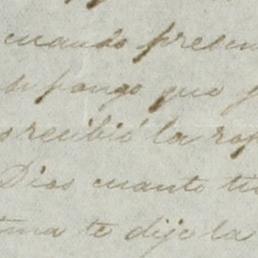 cuando presen
de fango que
recibió la rop
Dios cuanto tu
te dije la